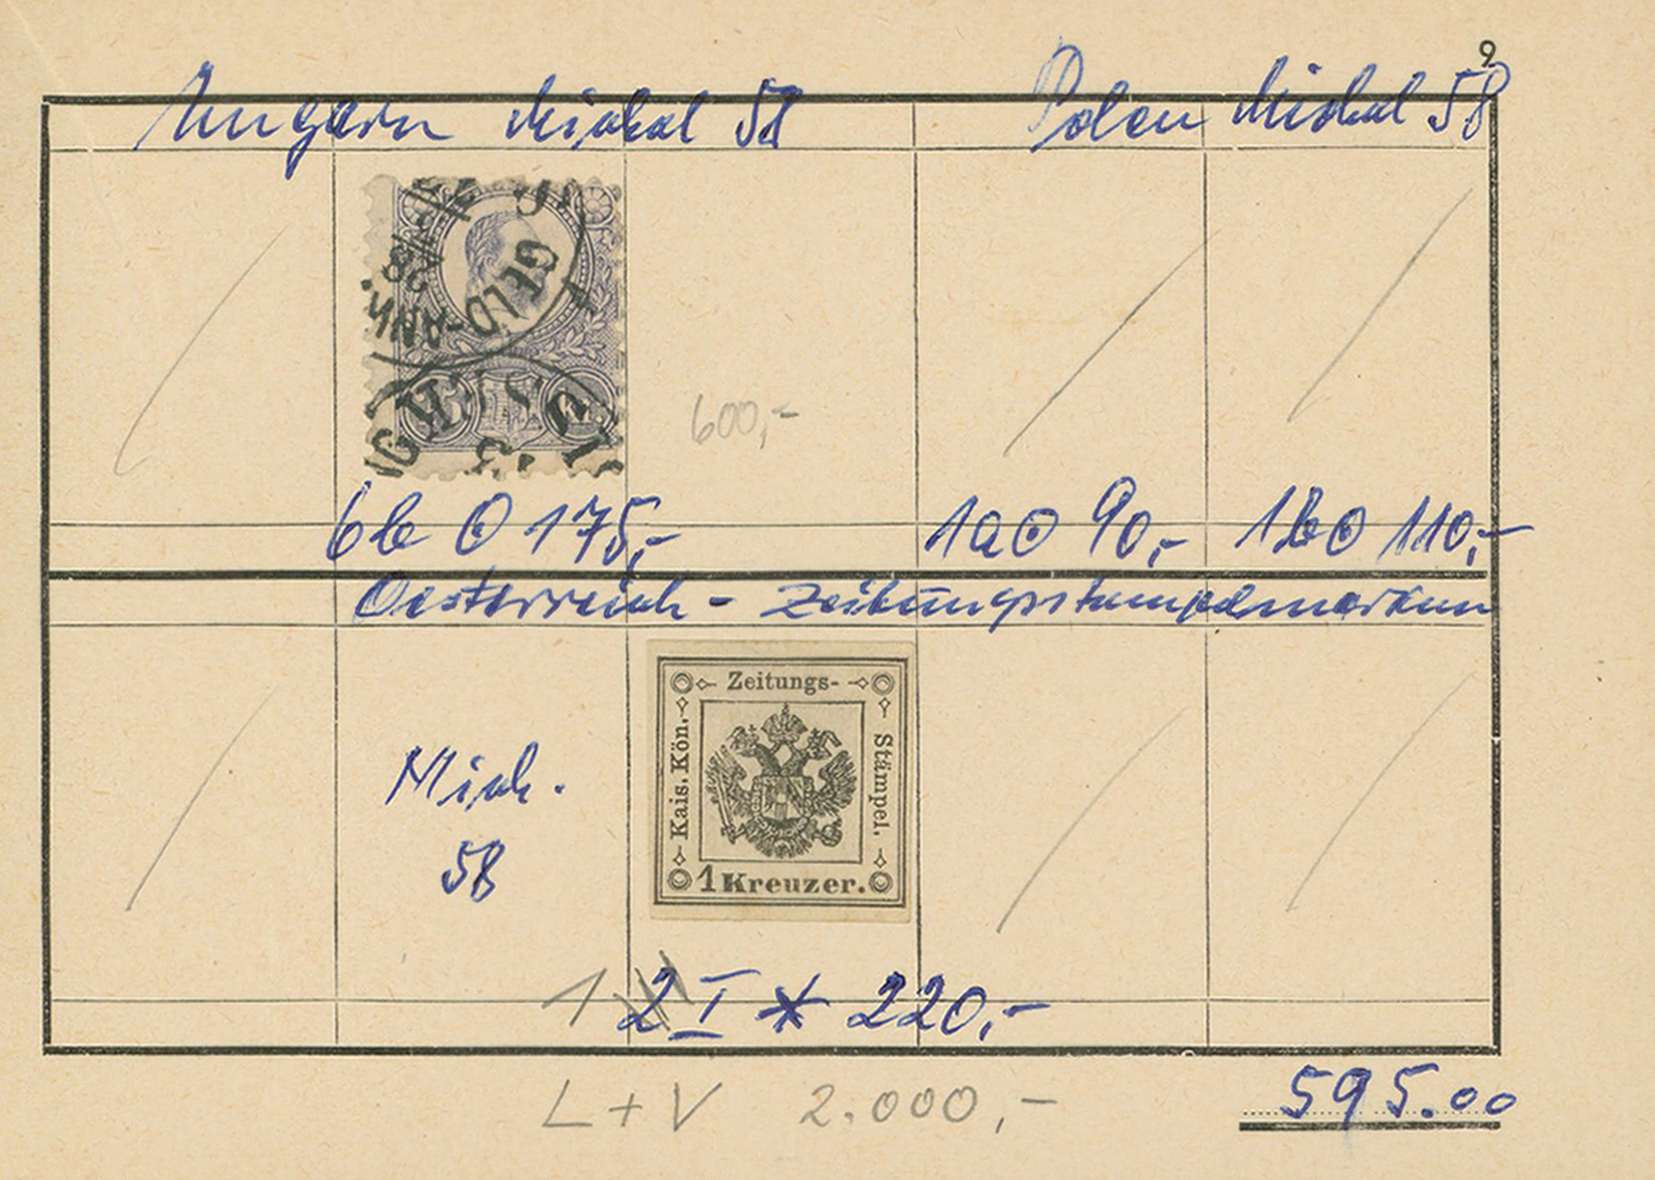 9
Ungarn Michel 58
Polen Michel 58
GELD-ANW.
600,-
6b ʘ 175,-
1a ʘ 90,-
1b ʘ 110,-
Oesterreich - Zeitungsstempelmarken
Mich.
58
Zeitungs-
Kais. Kön.
Stämpel.
1 Kreuzer.
1 2 I * 220,-
L+V 2.000,-
595.00